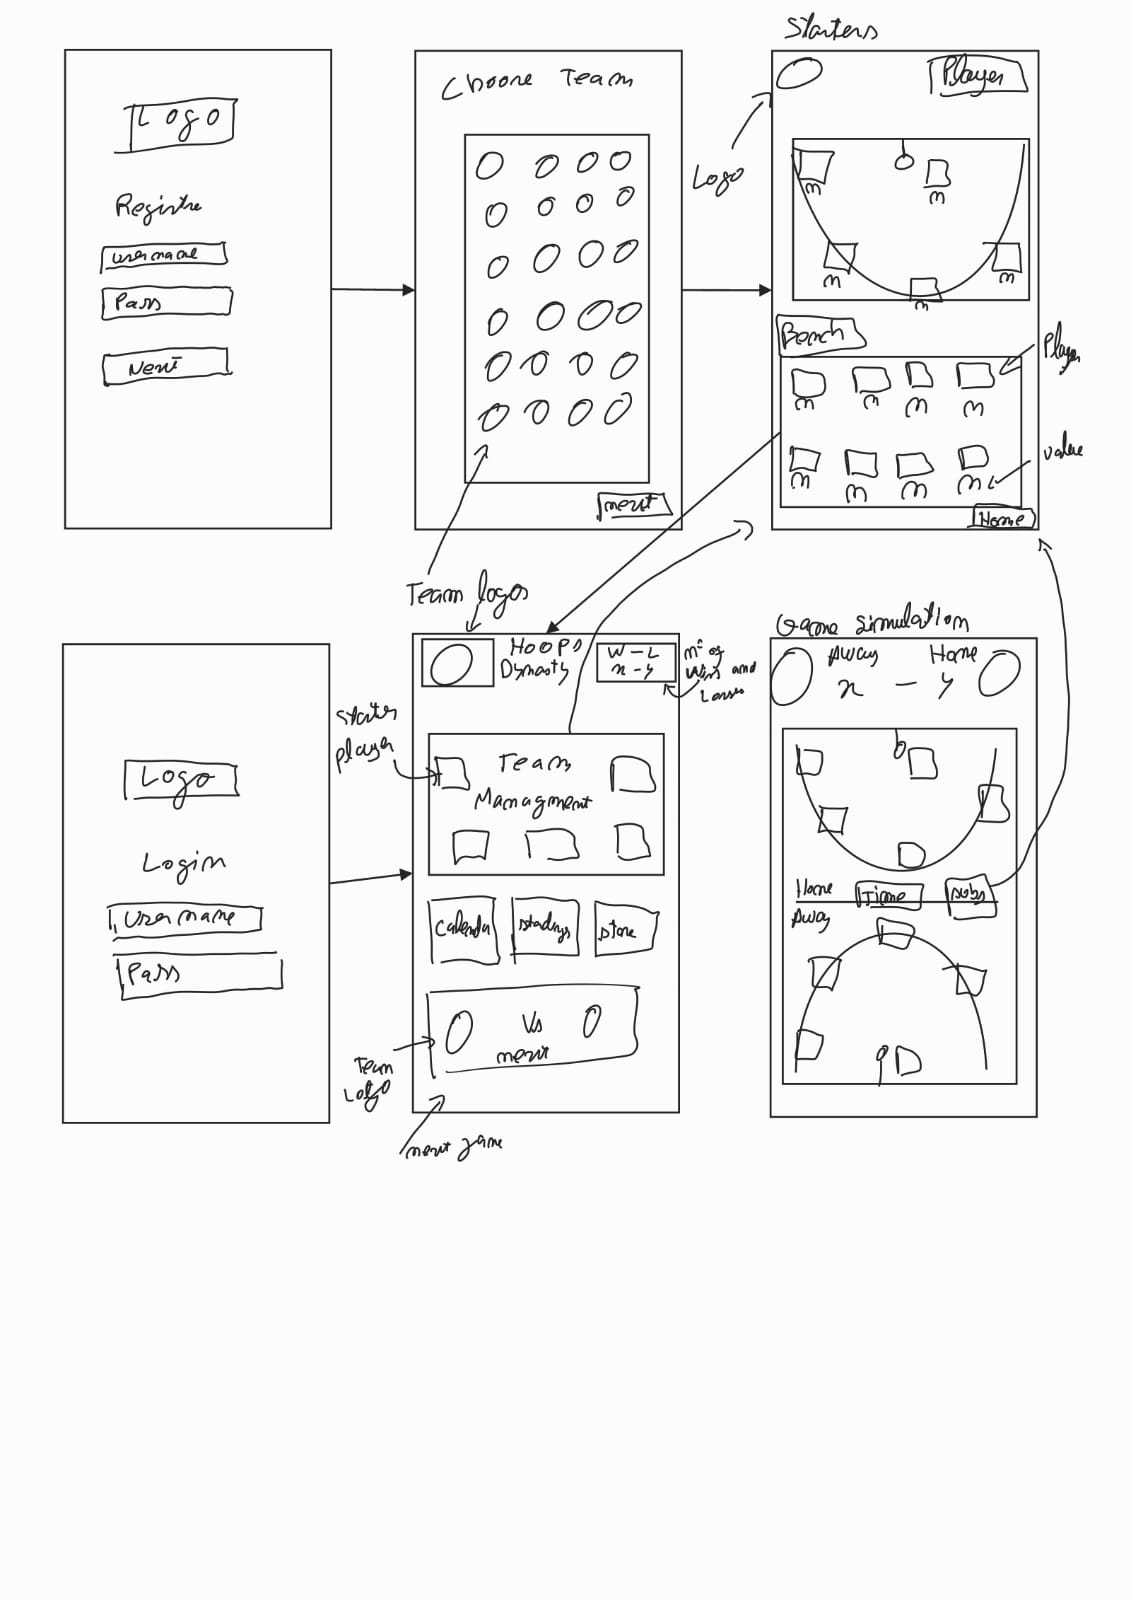 Starters
Logo
Registre
Username
Pass
Next
Choose Team
next
Team logos
Logo
Player
m
m
m
m
m
Bench
Player
m
m
m
m
value
m
m
m
m
Home
Logo
Login
Username
Pass
HOOPS
Dynasty
W - L
x - y
nº of
Wins and
Losses
Starter
player
Team
Managment
Calendar
standings
store
Vs
next
Team
Logo
next game
Game simulation
Away
Home
x - y
Home
Time
subs
Away